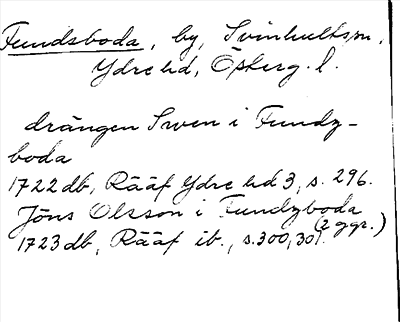 Fundsboda, by, Svinhults sn,
Ydre hd, Österg. l.
drängen Swen i Fundz-
boda
1722 db, Rääf Ydre hd 3, s. 296.
Jöns Olsson i Fundzboda
(2 ggr.)
1723 db, Rääf ib., s. 300, 301.